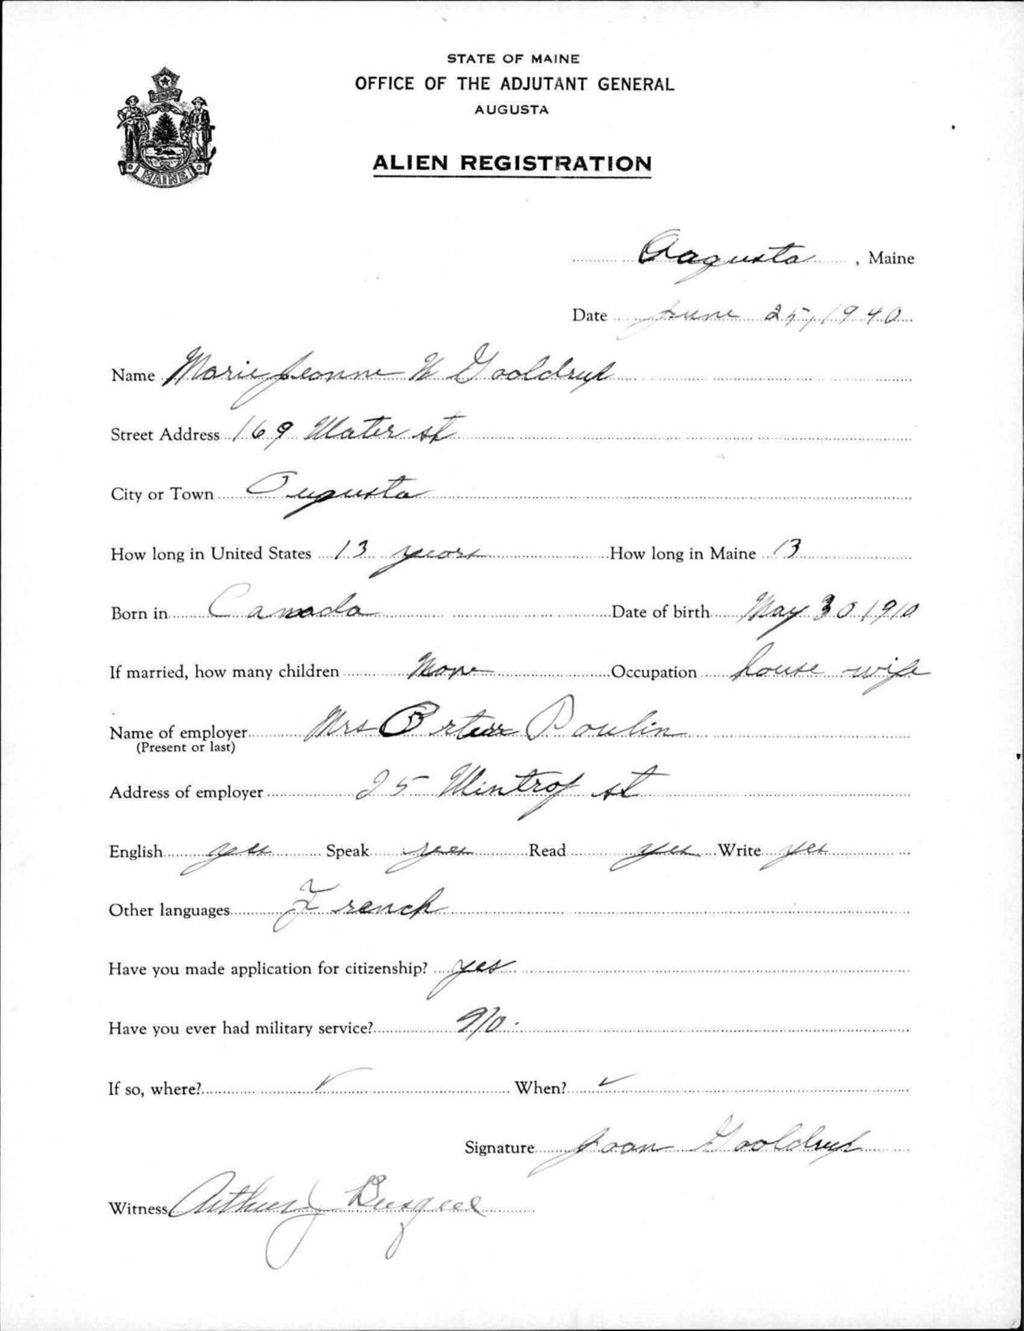 STATE OF MAINE
OFFICE OF THE ADJUTANT GENERAL
AUGUSTA
ALIEN REGISTRATION
MAINE
Augusta, Maine
Date June 25, 1940
Name Marie Jeanne W Gooldrup
Street Address 169 Water st
City or Town Augusta
How long in United States 13 years How long in Maine 13
Born in Canada Date of birth May 30 1910
If married, how many children None Occupation house wife
Name of employer Mrs Poulin
(Present or last)
Address of employer 25 Wintrop st
English yes Speak yes Read yes Write yes
Other languages French
Have you made application for citizenship? yes
Have you ever had military service? No.
If so, where? ✓ When? ✓
Signature Joan Gooldrup
Witness Arthur J